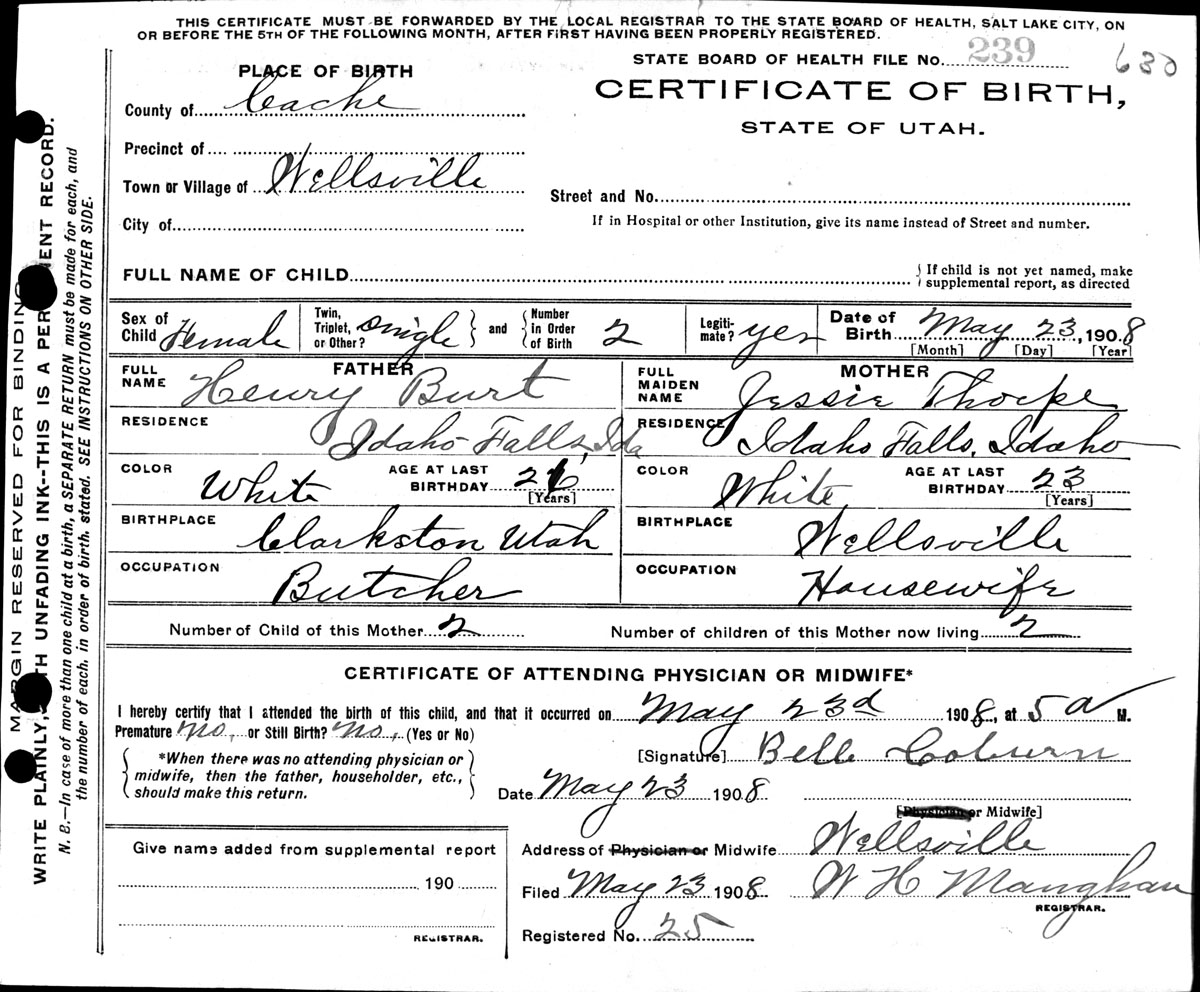 THIS CERTIFICATE MUST BE FORWARDED BY THE LOCAL REGISTRAR TO THE STATE BOARD OF HEALTH, SALT LAKE CITY, ON
OR BEFORE THE 5TH OF THE FOLLOWING MONTH, AFTER FIRST HAVING BEEN PROPERLY REGISTERED.
STATE BOARD OF HEALTH FILE No. 239
630
PLACE OF BIRTH
CERTIFICATE OF BIRTH,
STATE OF UTAH.
County of Cache
Precinct of
Town or Village of Wellsville
Street and No.
City of
If in Hospital or other Institution, give its name instead of Street and number.
FULL NAME OF CHILD
{ If child is not yet named, make
supplemental report, as directed
Sex of Child Female
Twin, Triplet, or Other? Single } and { Number in Order of Birth 2
Legiti-mate? yes
Date of Birth May 23, 1908
[Month] [Day] [Year]
FATHER
FULL NAME Henry Burt
MOTHER
FULL MAIDEN NAME Jessie Thorpe
RESIDENCE Idaho Falls, Ida
RESIDENCE Idaho Falls, Idaho
COLOR White AGE AT LAST BIRTHDAY 26 [Years]
COLOR White AGE AT LAST BIRTHDAY 23 [Years]
BIRTHPLACE Clarkston Utah
BIRTHPLACE Wellsville
OCCUPATION Butcher
OCCUPATION Housewife
Number of Child of this Mother 2
Number of children of this Mother now living 2
CERTIFICATE OF ATTENDING PHYSICIAN OR MIDWIFE*
I hereby certify that I attended the birth of this child, and that it occurred on May 23d 1908, at 5 a M.
Premature no, or Still Birth? no, (Yes or No)
*When there was no attending physician or
midwife, then the father, householder, etc.,
should make this return.
[Signature] Belle Coburn
Date May 23 1908
[Physician or Midwife]
Give name added from supplemental report
190
REGISTRAR.
Address of Physician or Midwife Wellsville
Filed May 23 1908 W H Maughan
REGISTRAR.
Registered No. 25
MARGIN RESERVED FOR BINDING
WRITE PLAINLY, UNFADING INK--THIS IS A RECORD.
N. B.—In case of more than one child at a birth, a SEPARATE RETURN must be made for each, and
the number of each, in order of birth, stated. SEE INSTRUCTIONS ON OTHER SIDE.